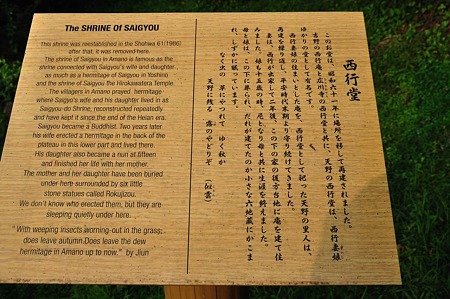 The SHRINE Of SAIGYOU
This shrine was reestablished in the Shohwa 61(1986)
after that the house is moved here.
The shrine of Saigyou in Amano is famous as the
shrine connected with Saigyou's wife and daughter
as much as a hermitage of Saigyou in Yoshino
and the shrine of Saigyou the Hirokawatera Temple.
The villagers in Amano prayed, hermitage
where Saigyo's wife and his daughter lived in as
Saigyou-do Shrine, reconstructed repeatedly
and have kept it since the end of the Heian era.
Saigyou became a Buddhist. Two years later
his wife erected a hermitage in the back of the
plateau in this lower part and lived there.
His daughter also became a nun at fifteen
and finished her life with her mother.
The mother and her daughter have been buried
under herb surrounded by six little
stone statues called Rokujizou.
We don't know who erected them, but they are
sleeping quietly under here.
"With weeping insects worning-out in the grass;
does leave autumn.Does leave the dew
hermitage in Amano up to now." by Jiun
西行堂
このお堂は、昭和六十一年に場所を移して再建されました。
吉野の西行庵と広川寺の西行堂と共に、天野の西行堂は、西行妻娘
ゆかりの堂として有名です。
西行妻娘の住まいとした庵を、西行堂として祀った天野の里人は、
再建を繰り返し、平安時代末期より守り続けてきました。
妻は、西行が出家して二年後、この下の家の後方台地に庵を建て住
みました。娘も十五歳の時、尼となり母と共に生涯を終えました。
母と娘は、この下に葬られ、だれが建てたのか小さな六地蔵にかこま
れ、しずかに眠っています。
なく虫の 草にやつれて ゆく秋か
天野に残る 露のやどりぞ
(似雲)